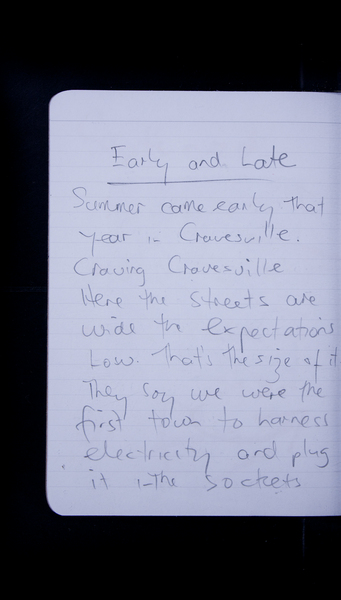 Early and Late
Summer came early that
year in Cravesville.
Craving Cravesville
Here the streets are
wide the expectations
Low. That's the size of it
They say we were the
first town to harness
electricity and plug
it in the sockets